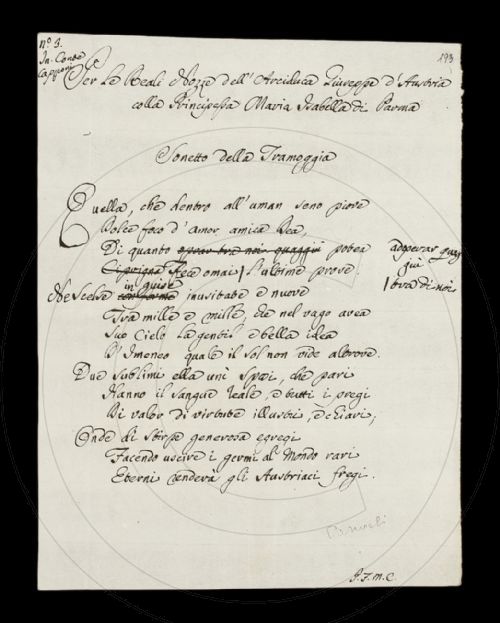 nº 3.
In. Conte
Capponi
193
Per le Reali Nozze dell'Arciduca Giuseppe d'Austria
colla Principessa Maria Isabella di Parma
Sonetto della Tramoggia
Quella, che dentro all'uman seno piove
Dolce foco d'amor, amica Dea,
Di quanto oprar tra noi quaggiù potea adoperar quag
giù
Ciprigna Fea omai l'ultime prove: tra di noi
in guise
Ne scelse conforme inusitate e nuove
Tra mille e mille, che nel vago avea
Suo Cielo la gentil e bella idea
D'Imeneo quale il sol non vide altrove.
Due sublimi ella unì Sposi, che pari
Hanno il sangue reale, e tutti i pregi
Di valor di virtute illustri, e chiari;
Onde di stirpe generosa egregi
Facendo uscire i germi al Mondo rari
Eterni rendeva gli Austriaci fregi.
P.F.M.C.